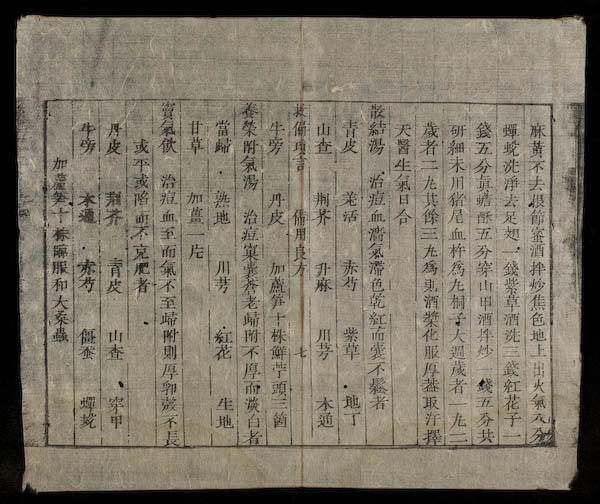 麻黃不去根節蜜酒拌炒焦色地上出火氣八分
蟬蛻洗淨去足翅一錢紫草酒洗三錢紅花子一
錢五分真蟾酥五分穿山甲酒拌炒一錢五分共
研細末用猪尾血杵為丸桐子大週歲者一丸二
歲者二丸其餘三丸為則酒漿化服厚蓋取汗擇
天醫生氣日合
散結湯 治痘血滯氣滯色乾紅而囊不鬆者
青皮 羌活 赤芍 紫草 地丁
山查 荆芥 升麻 川芎 木通
救偏瑣言 備用良方 七
牛旁 丹皮 加蘆笋十株鮮芋頭三箇
養榮附氣湯 治痘窠囊蒼老歸附不厚而淡白者
當歸 熟地 川芎 紅花 生地
甘草 加薑一片
實氣飲 治痘血至而氣不至歸附則厚卵殼不長
或平或陷而不克肥者
丹皮 荆芥 青皮 山查 穿甲
牛旁 木通 赤芍 僵蚕 蟬蛻
加蘆笋十株臨服和大桑蟲